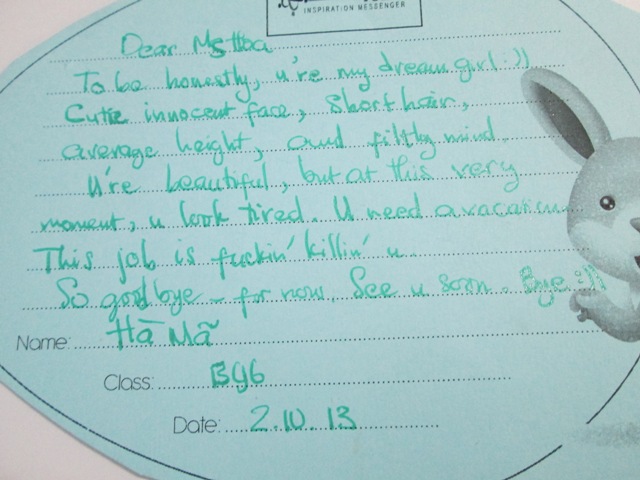 INSPIRATION MESSENGER
Dear Ms Hoa
To be honestly, u're my dream girl :))
Cutie innocent face, short hair,
average height, and filthy mind.
U're beautiful, but at this very
moment, u look tired. U need a vacation
This job is fuckin' killin' u.
So goodbye - for now. See u soon. Bye :))
Name: Hà Mã
Class: BG6
Date: 2.10.13